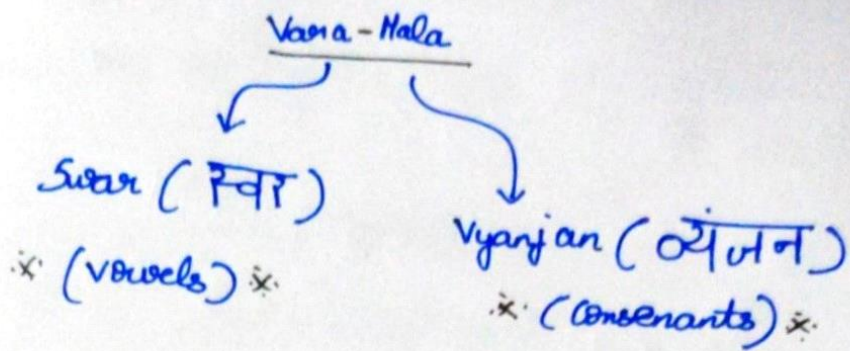 Varna-Mala
Swar (स्वर)
※ (vowels) ※
Vyanjan (व्यंजन)
※ (Consenants) ※